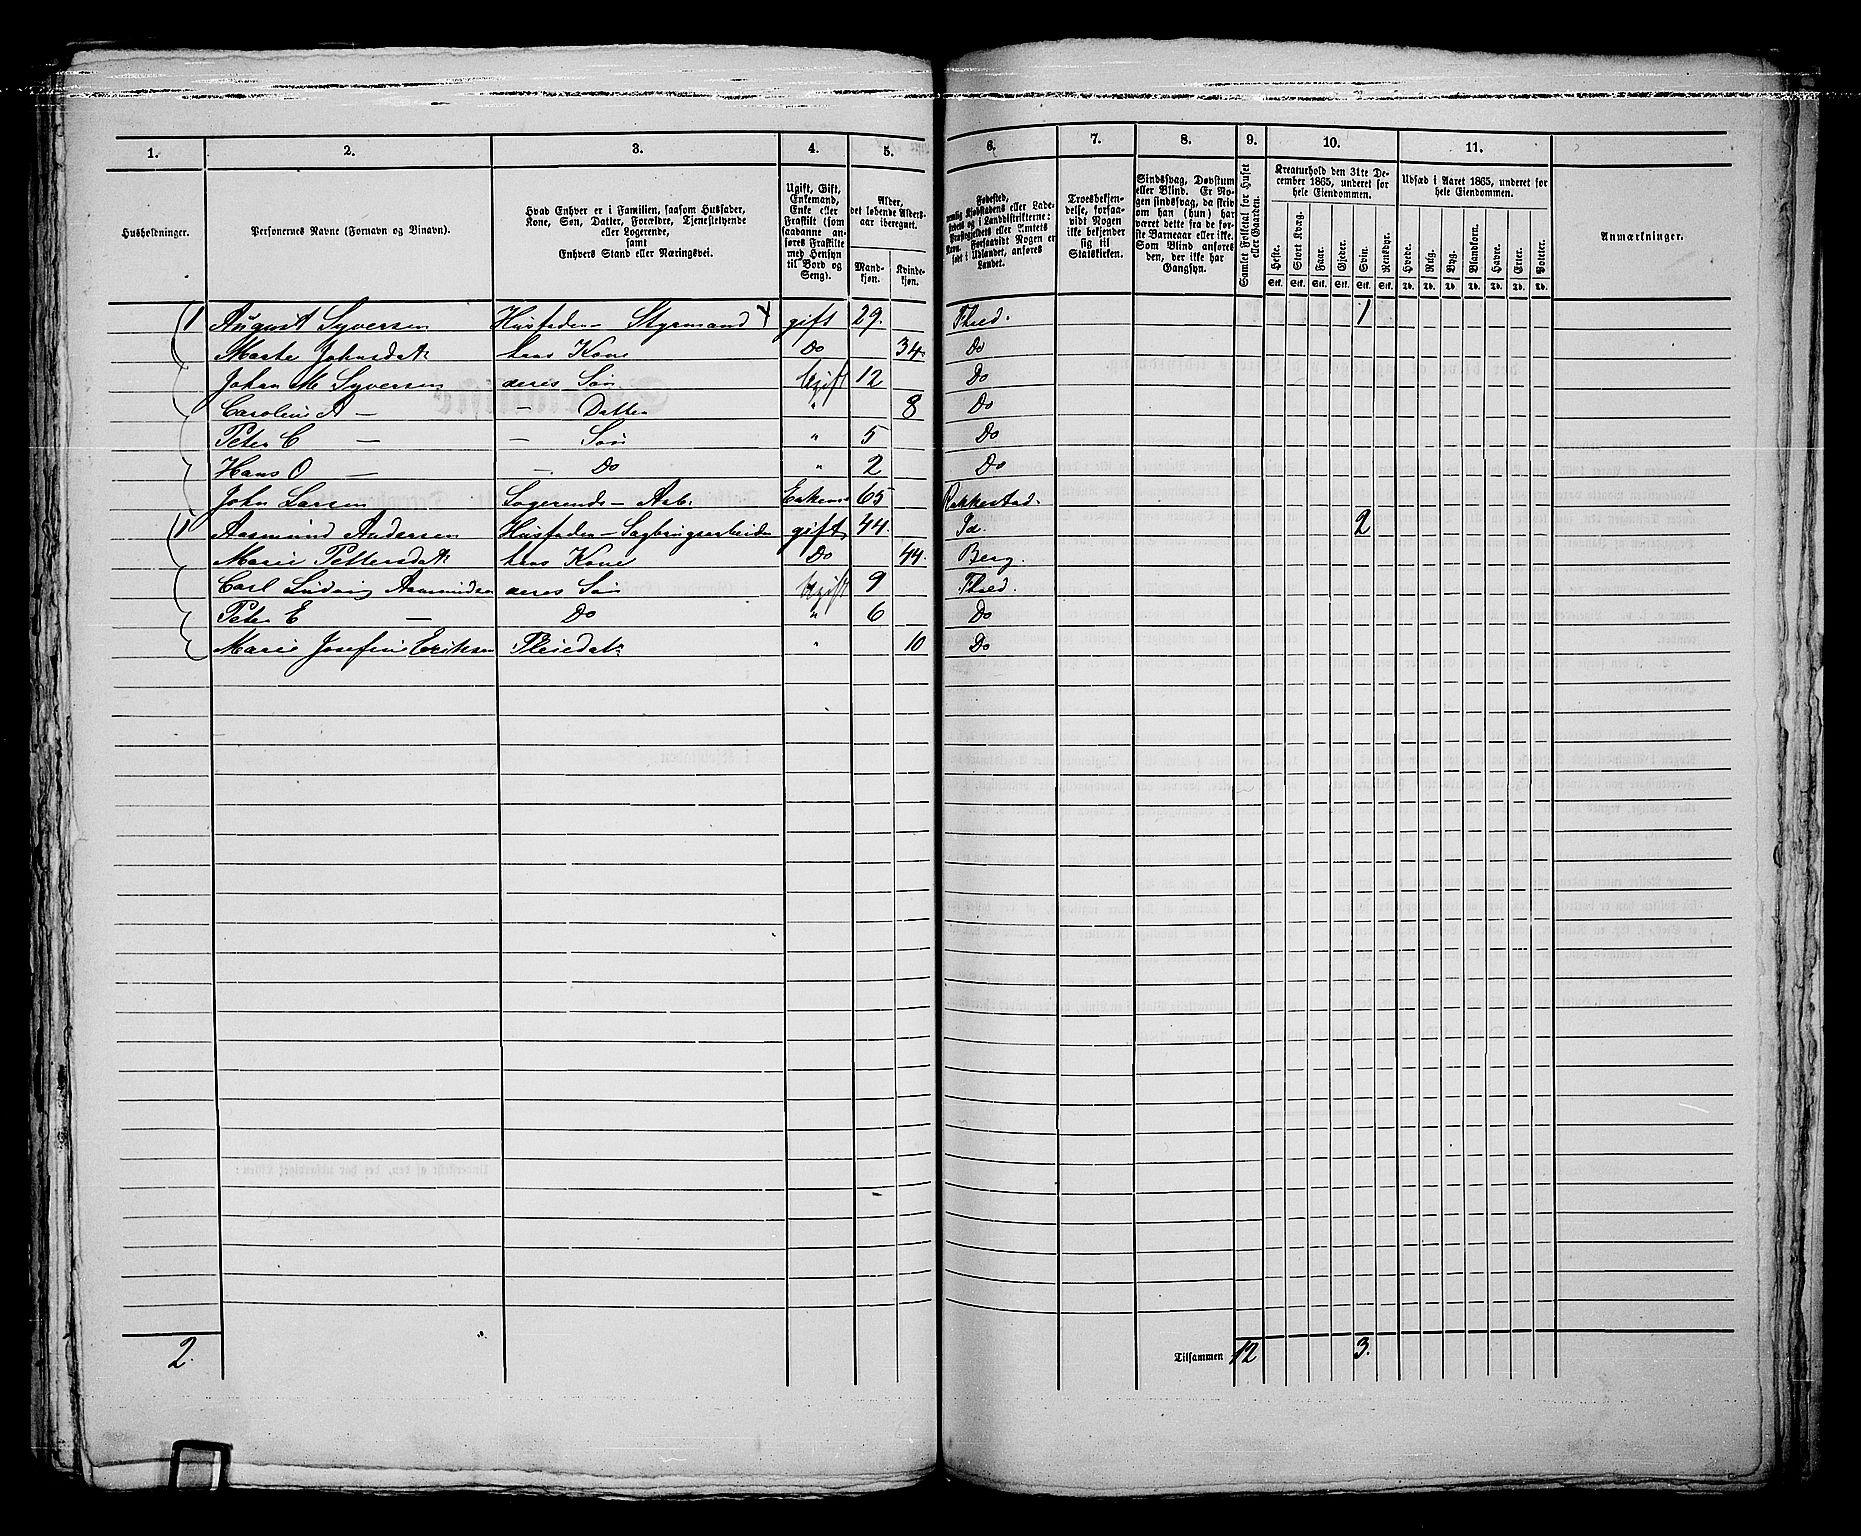 1. 2. 3. 4. 5. 6. 7. 8. 9. 10. 11.
Husholdninger.
Personernes Navne (Fornavn og Binavn).
Hvad Enhver er i Familien, saasom Husfader,
Kone, Søn, Datter, Forældre, Tjenestetyende
eller Logerende,
samt
Enhvers Stand eller Næringsvei.
Ugift, Gift,
Enkemand,
Enke eller
Fraskilt (som
saadanne an-
føres Fraskilte
med Hensyn
til Bord og
Seng).
Alder,
det løbende Alders-
aar iberegnet.
Mand-
kjøn.
Kvinde-
kjøn.
Fødested,
nemlig Kjøbstadens eller Lade-
stedets og i Landdistrikterne:
Præstegjeldets eller Amtets
Navn. Forsaavidt Nogen er
født i Udlandet, anføres
Landet.
Troesbekjen-
delse, forsaa-
vidt Nogen
ikke bekjender
sig til
Statskirken.
Sindssvag, Døvstum
eller Blind. Er No-
gen sindssvag, da skriv
om han (hun) har
været dette fra de før-
ste Barneaar eller ikke.
Som Blind anføres
den, der ikke har
Gangsyn.
Samlet Folketal for Huset
eller Gaarden.
Kreaturhold den 31te De-
cember 1865, underet for
hele Eiendommen.
Heste. Stort Kvæg. Faar. Gjeder. Svin. Rensdyr.
Stk. Stk. Stk. Stk. Stk. Stk.
Udsæd i Aaret 1865, underet for
hele Eiendommen.
Hvede. Rug. Byg. Blandkorn. Havre. Erter. Poteter.
Td. Td. Td. Td. Td. Td. Td.
Anmærkninger.
1 August Syversen Husfader - Styrmand gift 29. Fhald. 1
Marte Johnsdatr hans Kone Do 34. Do
Johan M Syversen deres Søn Ugift 12 Do
Caroline A — — Datter " 8 Do
Peter C — — Søn " 5 Do
Hans O — — Do " 2 Do
John Larsen Logerende - Arb: Enkem. 65 Rakkestad.
1 Aasmund Andersen Husfader - Sagbrugsarbeider gift 44. Id. 2
Marie Pettersdatr hans Kone Do 44. Berg.
Carl Ludvig Aasmundsen deres Søn Ugift 9 Fhald.
Peter E — Do " 6 Do
Marie Josefine Eriksen Pleiedatr " 10 Do
2. Tilsammen 12 3.